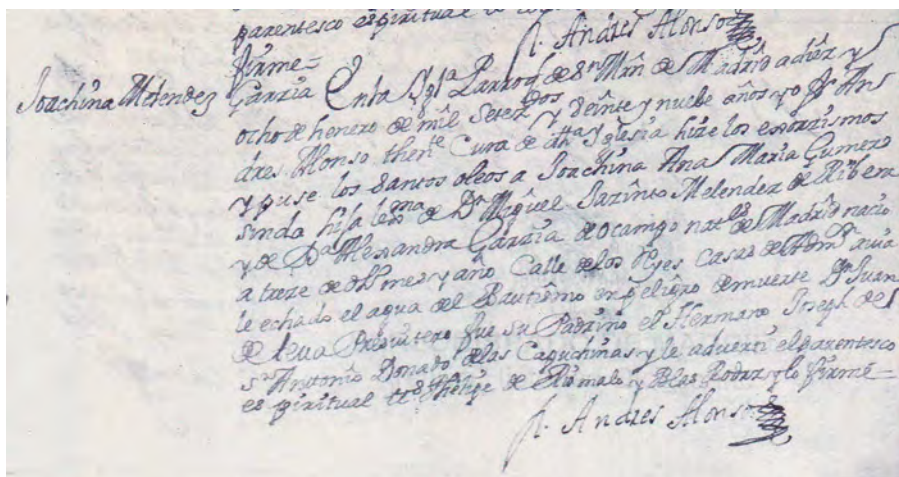 parentesco espiritual
firme=
fr. Andres Alonso
Joachina Melendez
Garzia En la Ygla Parroql de Sn Mrn de Madrid a diez y
ocho de henero de mil setezos y veinte y nuebe años yo fr. An
dres Alonso thente Cura de dha Yglesia hize los exorzismos
y puse los santos oleos a Joachina Ana Maria Gumero
sinda hija lexma de Dn Miguel Jazinto Melendez de Ribera
y de Da Alexandra Garzia de Ocampo nats de Madrid nacio
a treze de dho mes y año Calle de los Reyes casas de Admon avia
le echado el agua del Bautismo en peligro de muerte Dn Juan
de Leua Presvitero fue su Padrino el Hermano Joseph de
Sn Antonio Donado de las Capuchinas y le adverti el parentesco
espiritual de Riomalo y Blas Rodrz y lo firmé=
fr. Andres Alonso